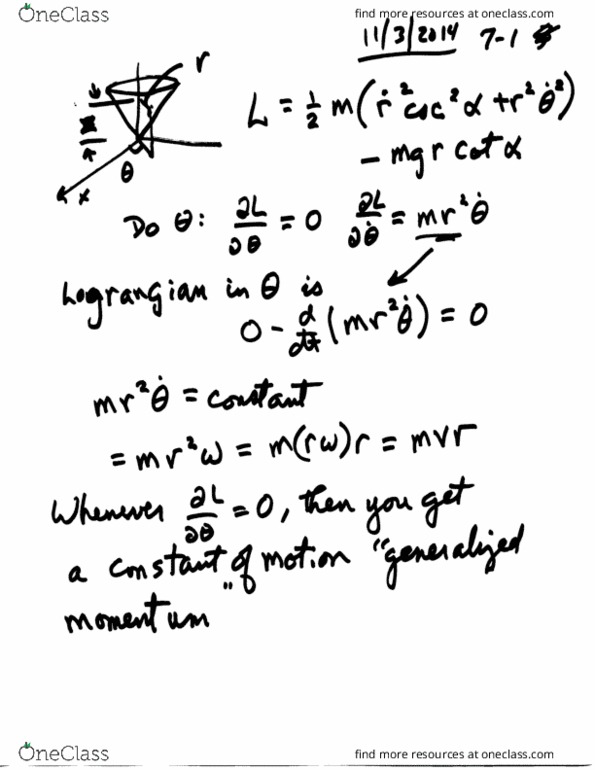 OneClass
find more resources at oneclass.com
11/3/2014 7-1
r
L = ½ m(ṙ² csc² α + r² θ̇²)
− mgr cot α
z
θ
x
Do θ: ∂L/∂θ = 0 ∂L/∂θ̇ = mr²θ̇
Lagrangian in θ is
0 − d/dt (mr²θ̇) = 0
mr²θ̇ = constant
= mr²ω = m(rω)r = mvr
Whenever ∂L/∂θ = 0, then you get
a constant of motion "generalized
momentum"
OneClass
find more resources at oneclass.com